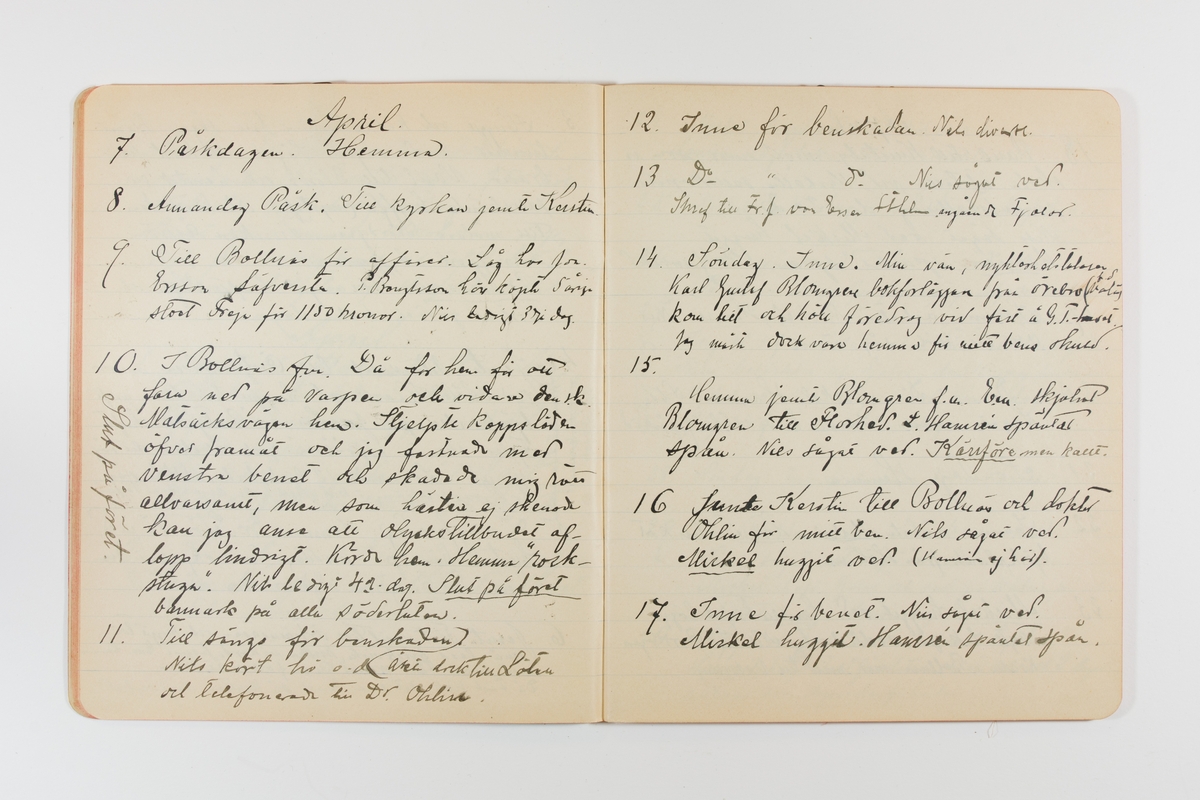 April.
7. Påskdagen. Hemma.
8. Annandag Påsk. Till kyrkan jemte Kerstin.
9. Till Bollnäs för affärer. Låg hos frn.
Ersson Säfversta. P. Bengtsson har köpt 5 årige
stoet Freja för 1150 kronor. Nils ledigt 3dje dag.
10. I Bollnäs fm. Då for hem för att
fara ned på Varpen och vidare den s.k.
Matsäcksvägen hem. Stjelpte kappsläden
öfver framåt och jag fastnade med
venstra benet och skadade mig rätt
allvarsamt, men som hästen ej skenade
kan jag anse att olyckstillbudet af-
lopp lindrigt. Körde hem. Hemma "rock-
stuga". Nils ledigt 4de dag. Slut på föret
barmark på alla söderluten.
Slut på föret.
11. Till sängs för benskadan
Nils kört hö o. d. åkte dock till Löten
och telefonerade till Dr. Ohlin.
12. Inne för benskadan. Nils diverse.
13 Do " do Nils sågat ved.
Skref till Frf. von Essen Sthlm angående Fjalar.
14. Söndag. Inne. Min vän, nykterhetstalaren
Karl Gustaf Blomgren bokförläggare från Örebro
kom hit och höll föredrag vid fest å G.T.-huset
Jag måste dock vara hemma för mitt bens skull.
15.
Hemma jemte Blomgren f.m. Em. skjutsat
Blomgren till Florhed. L. Hamrén späntat
spån. Nils sågat ved. Kärrföre men kallt.
16 Jemte Kerstin till Bollnäs och doktor
Ohlin för mitt ben. Nils sågat ved.
Mickel huggit ved. (Hamrén ej här).
17. Inne för benet. Nils sågat ved.
Mickel huggit. Hamrén späntat spån.